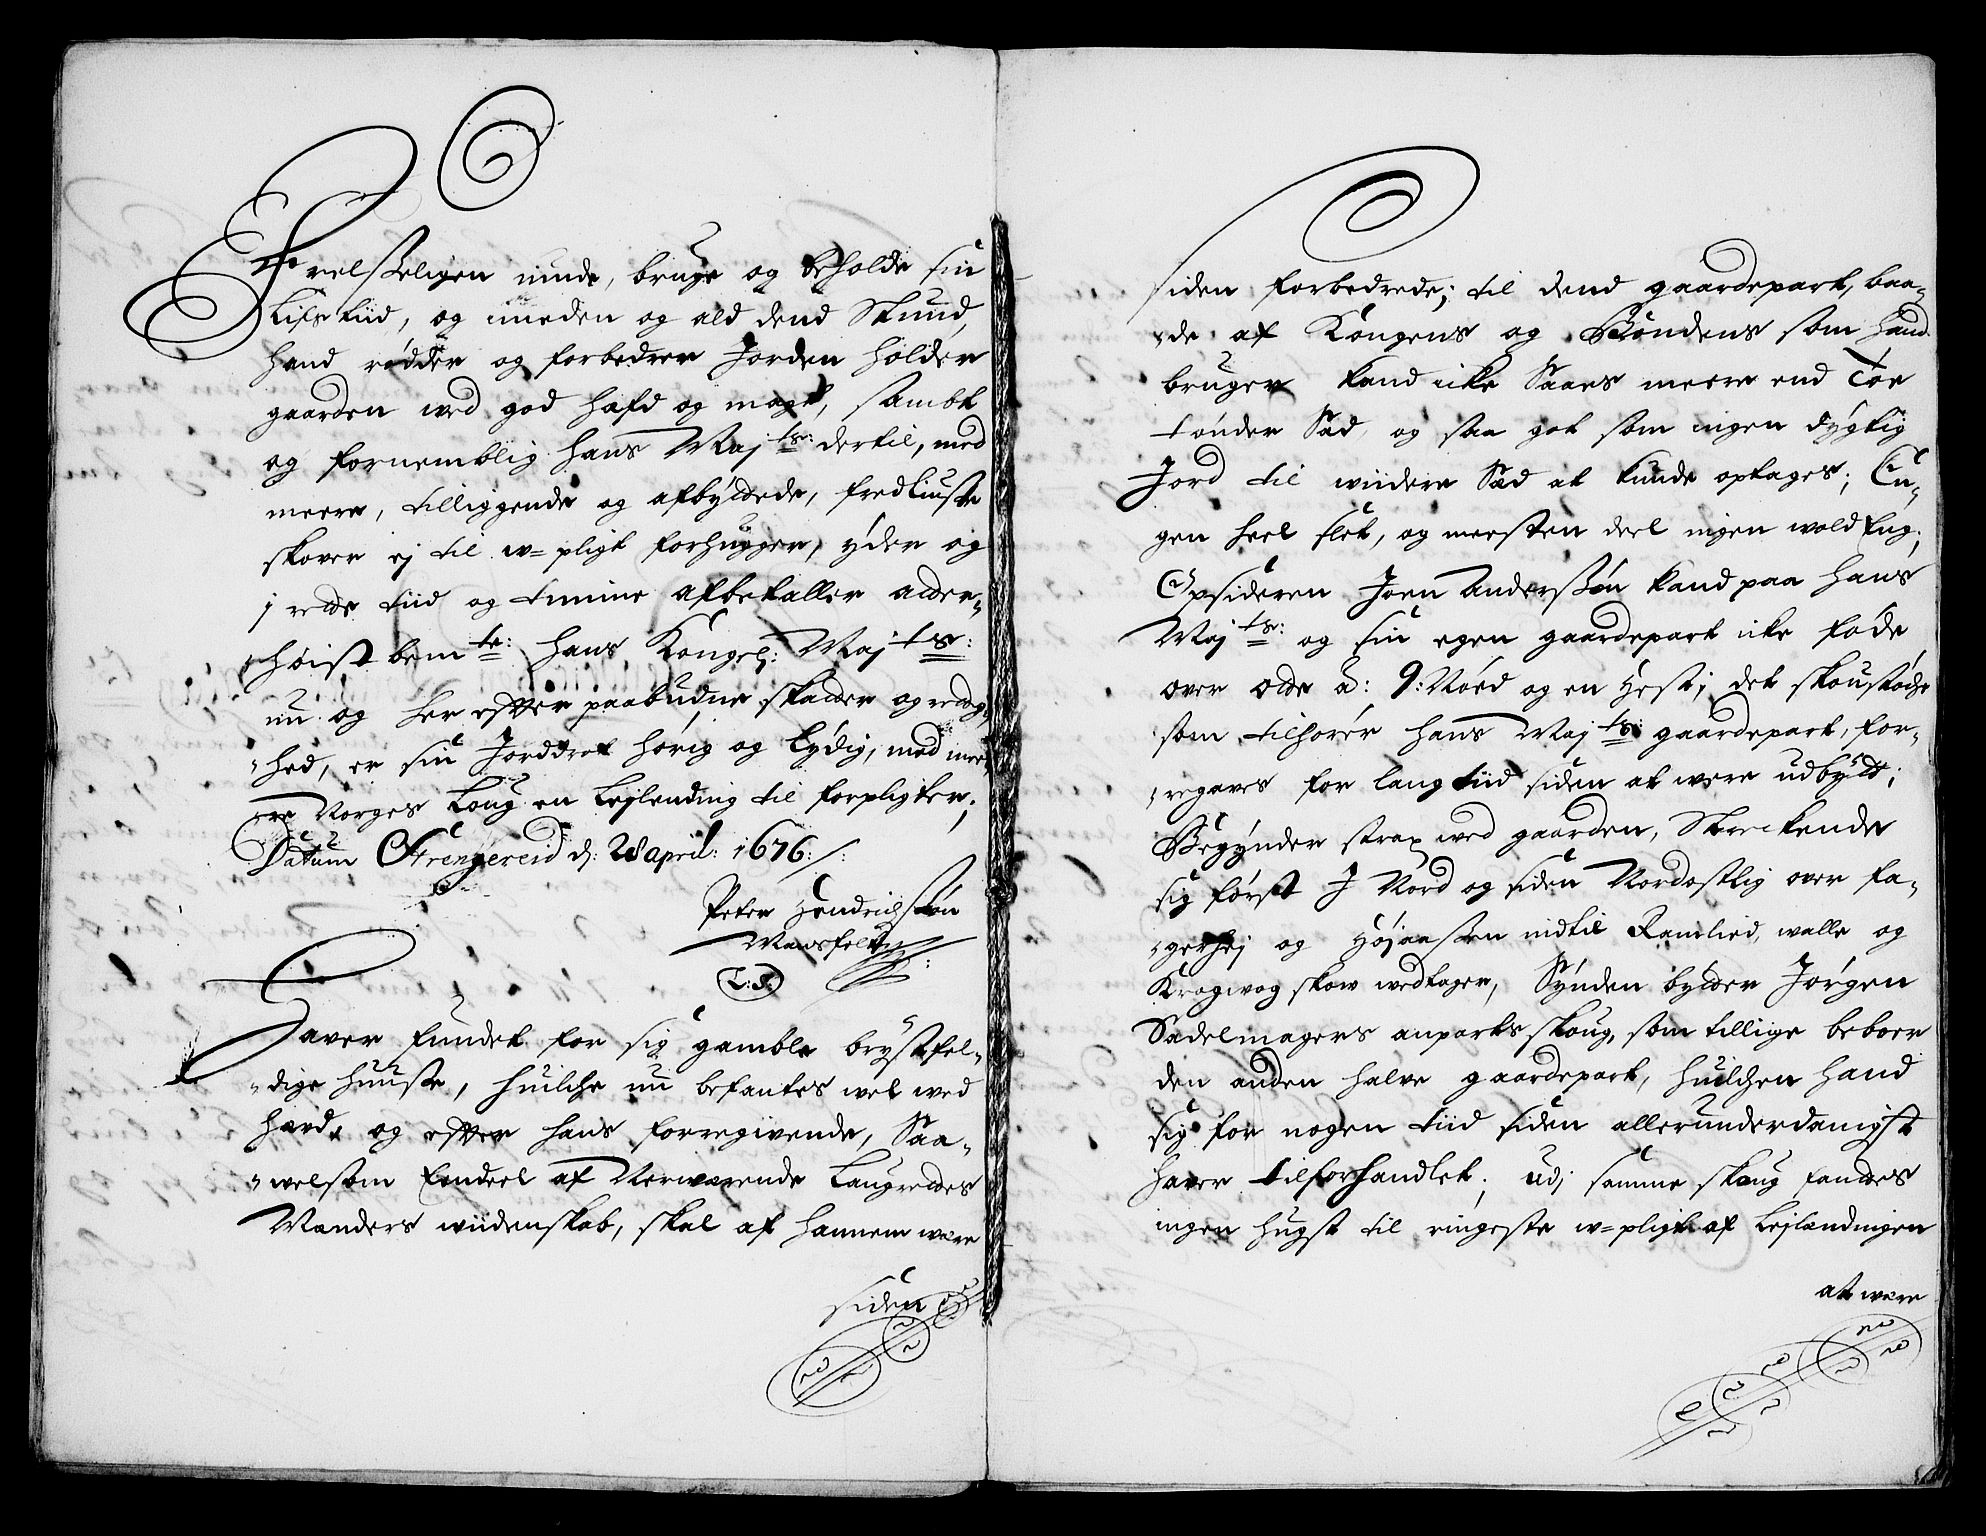 Frelsseligen niude, bruge og beholde sin
Lifs tiid, og imeden og ald dend Stund,
hand rødder og forbedrer Jorden holder
gaarden wed god hafd og magt, sambt
og fornemblig hans Maj ts: dertil, med
meere, tilliggende og afbyttede, fredliuste
skover ej til w=pligt forhugger, yder og
j rette tiid og timme afbetaller aller,,
,,høist bem te: Hans Kongel: Maj ts:
nu og her effter paabudne skatter og rettig,,
,,hed, er sin Jorddrot hørig og lydig, med mee,,
,,re Norges Loug en Lejlending til forpligter;
Datum Strengereid d: 28 april: 1676:/:
Peter Hendrichssøn
Mansfeldt
L:S:
Haver fundet for sig gamble brystfel,,
,,dige huusse, huilche nu befantes wel wed
hævd, og effter hans forregivende, Saa,,
,,welsom Eendeel af Nerwærende Laugrettes
Mænders wiidenskab, skal af hannem wære
siden
siden forbedrede; til dend gaardepart, baa,,
,,de af Kongens og Bøndens som hand
bruger kand icke Saaes meere end Toe
tønder Sæd, og saa got som ingen dygtig
Jord til wiidere Sæd at kunde optages; En,,
gen heel slet, og meesten deel ingen wold Eng;
Opsideren Joen Anderssøn kand paa Hans
Maj ts: og sin egen gaardepart icke føde
over otte a: 9: Nøed og en Hest; det skoustøche
som tilhører hans Maj ts: gaardepart, for,,
,,regaves for lang tiid siden at were udbytt;
Begynder strax wed gaarden, Streckende
sig først J Nord og siden Nordostlig over fa,,
,,gerhej og Højaassen indtil Ramlied, walle og
Krogwog skow wedtager, Synden bytter Jørgen
Sadelmagers anparts skoug, som tilliige beboer
den anden halve gaardepart, huilchen hand
sig for nogen tiid siden allerunderdanigst
haver tilforhandlet; udj samme skoug fandtes
ingen hugst til ringeste w=pligt af Lejlændingen
at wære